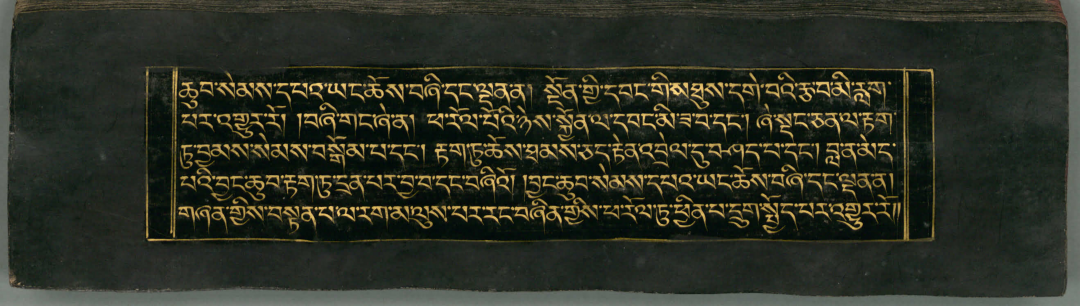 ཆུབ་སེམས་དཔའ་ཡང་ཆོས་བཞི་དང་ལྡན་ན། སྔོན་གྱི་དབང་གིས་ཐུས་དགེ་བའི་རྩ་བ་མི་རླག་
པར་འགྱུར་རོ། །བཞི་གང་ཞེ་ན། ཕ་རོལ་པོའི་ཉེས་སྐྱོན་ལ་དབང་མི་ཟ་བ་དང་། ཞེ་སྡང་ཅན་ལ་རྟག་
ཏུ་བྱམས་སེམས་བསྒོམ་པ་དང་། རྟག་ཏུ་ཆོས་ཐམས་ཅད་རྟེན་འབྲེལ་དུ་བཤད་པ་དང་། བླ་ན་མེད་
པའི་བྱང་ཆུབ་རྟག་ཏུ་དྲན་པར་བྱ་བ་དང་བཞིའོ། །བྱང་ཆུབ་སེམས་དཔའ་ཡང་ཆོས་བཞི་དང་ལྡན་ན།
གཞན་གྱིས་བསྟན་པ་ལ་རག་མ་ལུས་པར་རང་བཞིན་གྱིས་ཕ་རོལ་ཏུ་ཕྱིན་པ་དྲུག་སྤྱོད་པར་འགྱུར་རོ༎